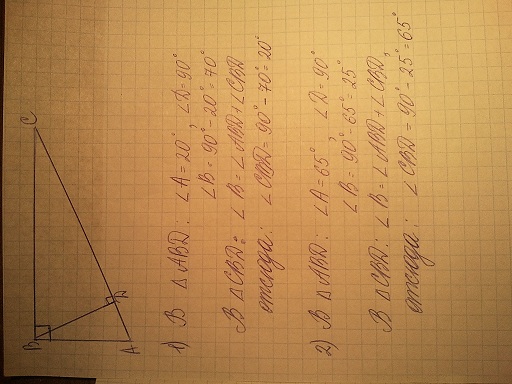 C
B
D
A
1) В △ ABD: ∠A = 20°, ∠D = 90°
∠B = 90° - 20° = 70°
В △ CBD: ∠B = ∠ABD + ∠CBD
отсюда: ∠CBD = 90° - 70° = 20°
2) В △ ABD: ∠A = 65°, ∠D = 90°
∠B = 90° - 65° = 25°
В △ CBD: ∠B = ∠ABD + ∠CBD,
отсюда: ∠CBD = 90° - 25° = 65°